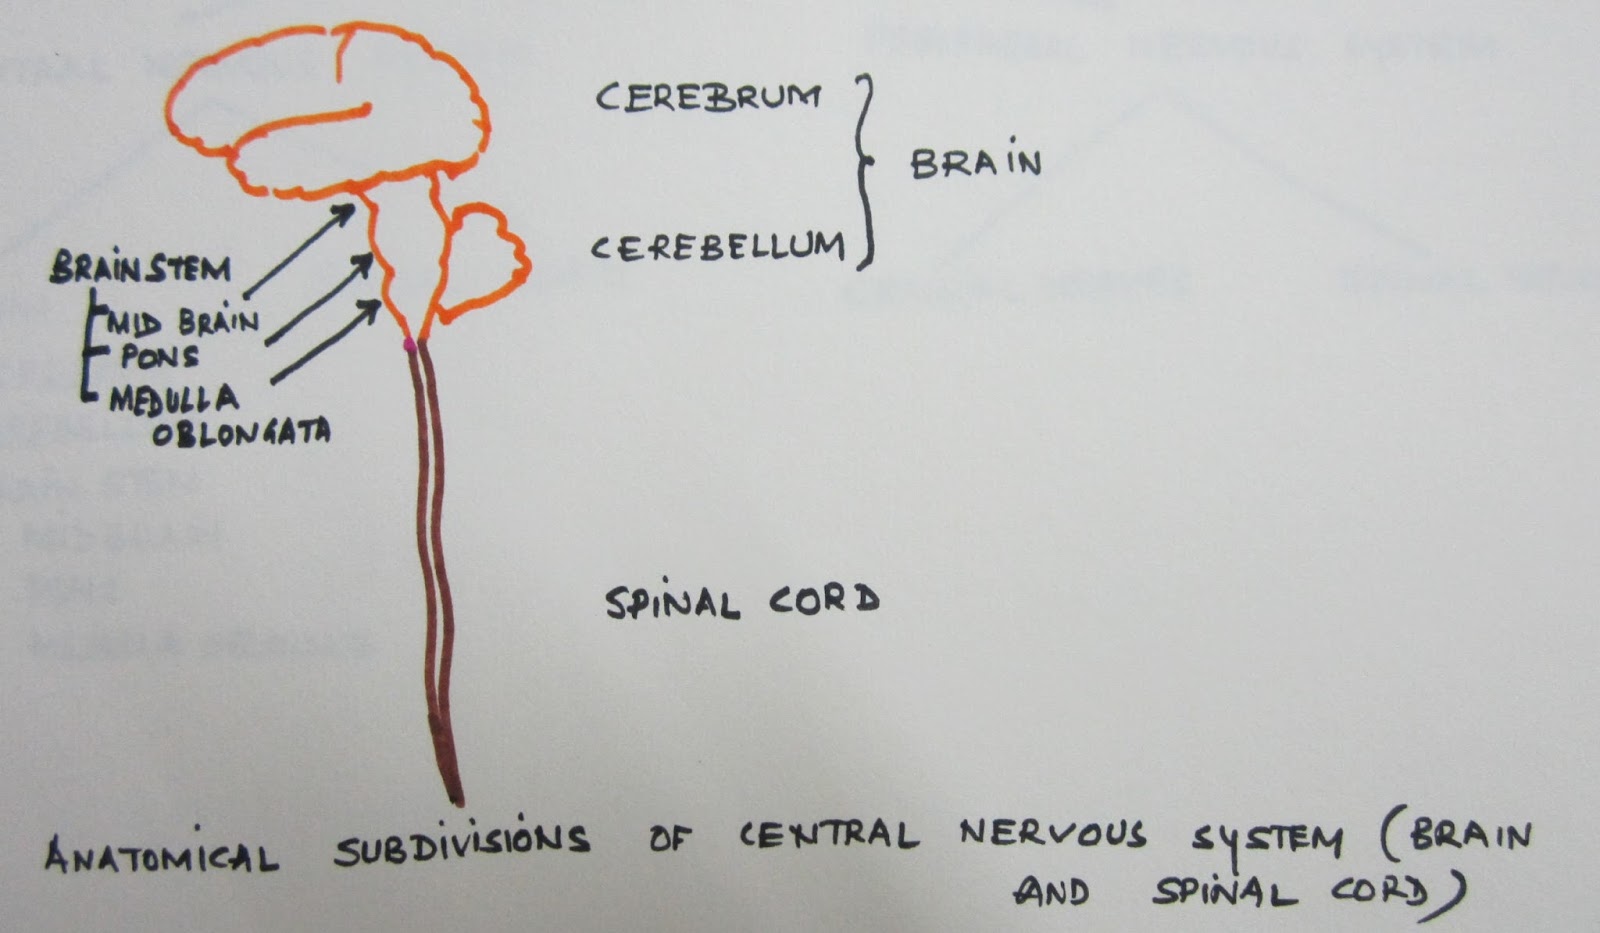 CEREBRUM
BRAIN
CEREBELLUM
BRAINSTEM
MID BRAIN
PONS
MEDULLA
OBLONGATA
SPINAL CORD
ANATOMICAL SUBDIVISIONS OF CENTRAL NERVOUS SYSTEM (BRAIN
AND SPINAL CORD)